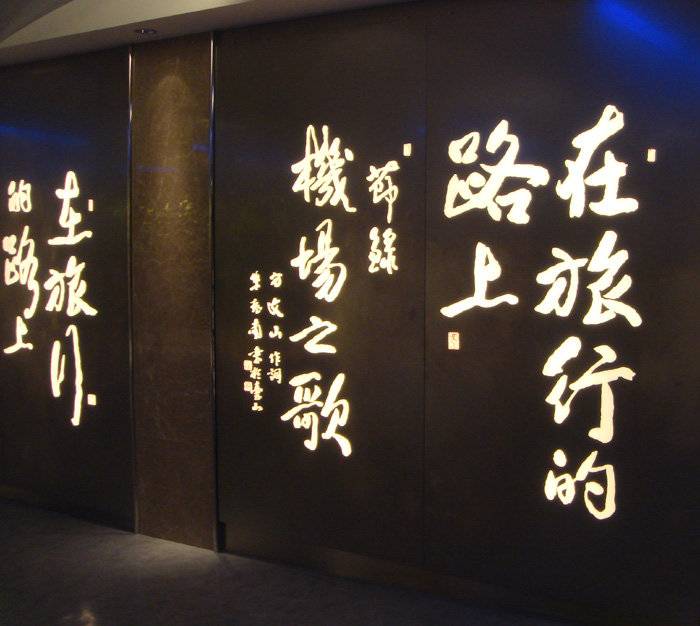 在旅行的
路上
節錄
機場之歌
方文山作詞
在旅行
的路上